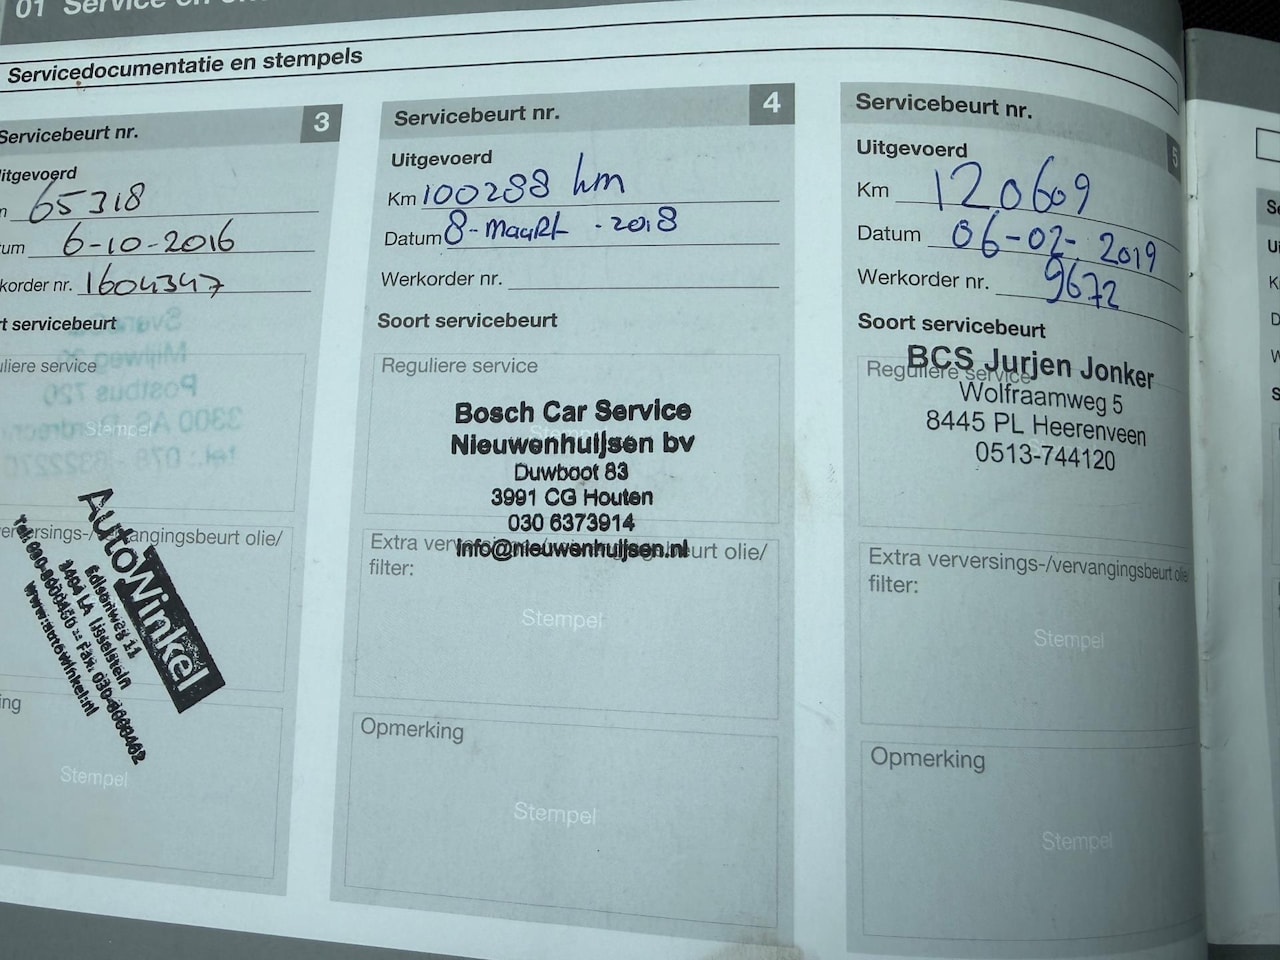 01 Service en
Servicedocumentatie en stempels
Servicebeurt nr. 3
itgevoerd
65318
tum 6-10-2016
korder nr. 1604347
rt servicebeurt
uliere service
Stempel
ververings-/vervangingsbeurt olie/
AutoWinkel
Edisonweg 11
3404 LA IJsselstein
www.autowinkel.nl
ing
Stempel
Servicebeurt nr. 4
Uitgevoerd
Km 100288 km
Datum 8-maart-2018
Werkorder nr.
Soort servicebeurt
Reguliere service
Stempel
Bosch Car Service
Nieuwenhuijsen bv
Duwboot 83
3991 CG Houten
030 6373914
info@nieuwenhuijsen.nl
Extra verversings-/vervangingsbeurt olie/
filter:
Stempel
Opmerking
Stempel
Servicebeurt nr. 5
Uitgevoerd
Km 120609
Datum 06-02-2019
Werkorder nr. 9672
Soort servicebeurt
Reguliere service
BCS Jurjen Jonker
Wolfraamweg 5
8445 PL Heerenveen
0513-744120
Extra ververings-/vervangingsbeurt olie/
filter:
Stempel
Opmerking
Stempel